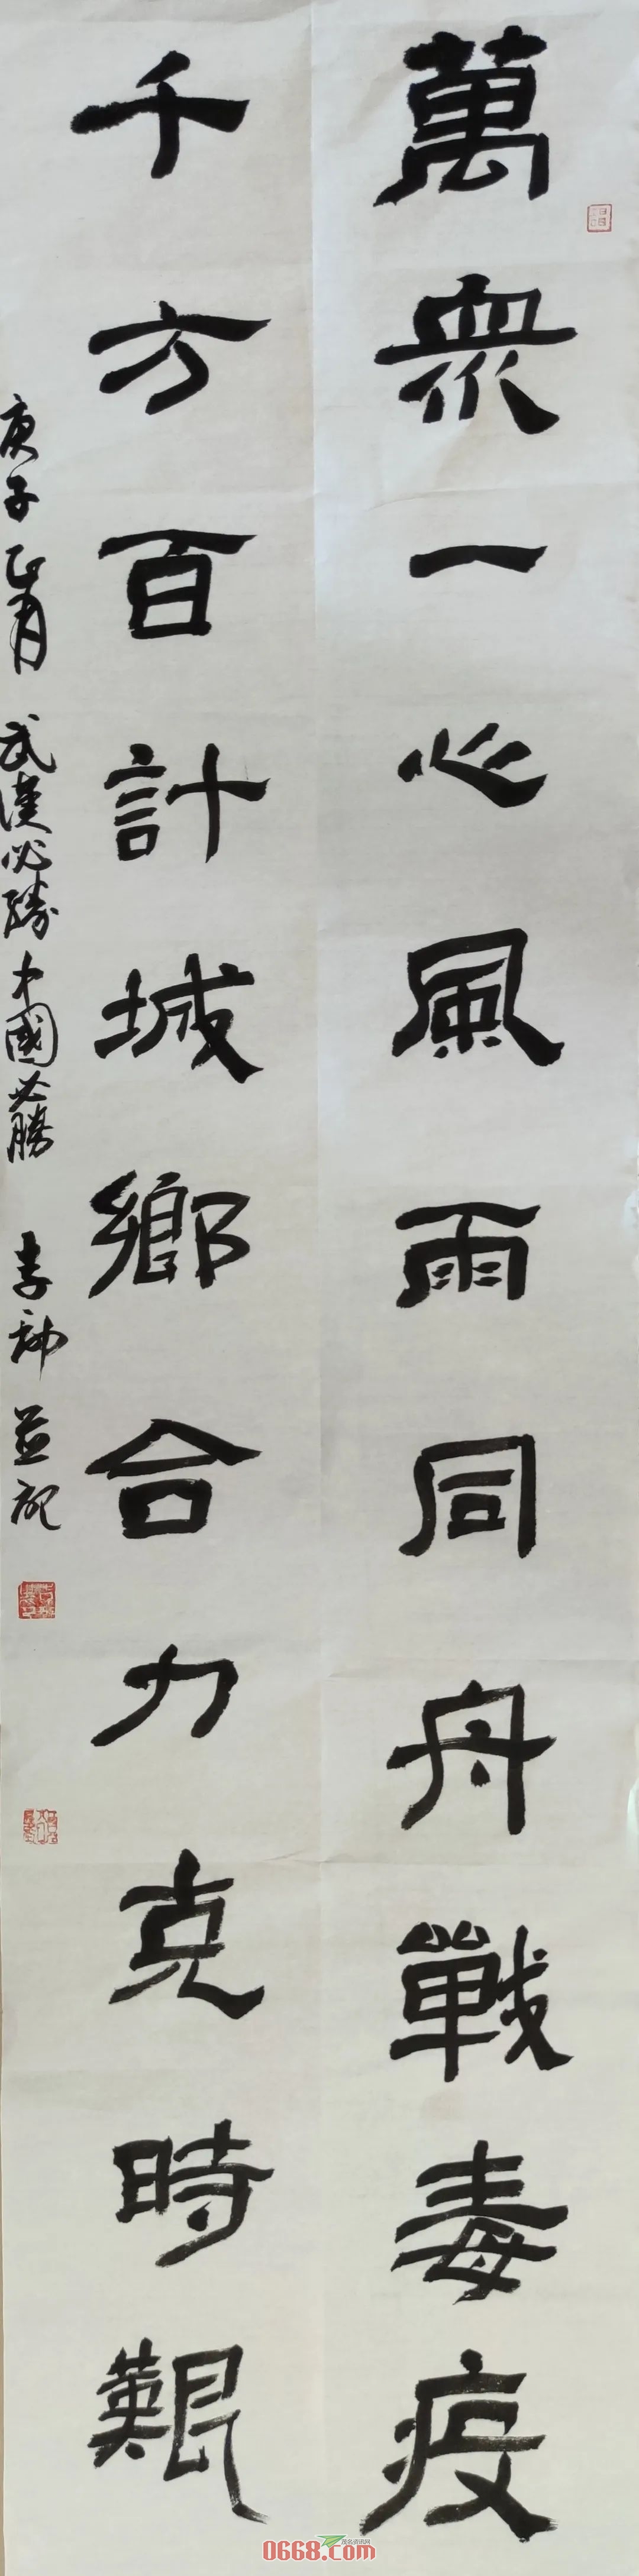 萬衆一心風雨同舟戰毒疫
千方百計城鄉合力克時艱
庚子正月 武漢必勝中國必勝 李 並記
茂名资讯网
0668.com